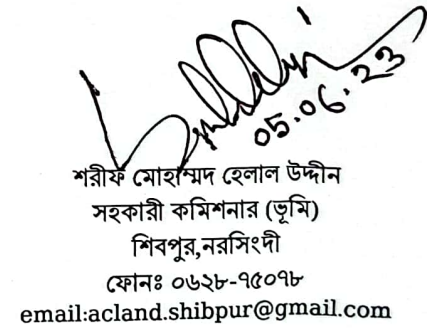 05.06.23
শরীফ মোহাম্মদ হেলাল উদ্দীন
সহকারী কমিশনার (ভূমি)
শিবপুর,নরসিংদী
ফোনঃ ০৬২৮-৭৫০৭৮
email:acland.shibpur@gmail.com